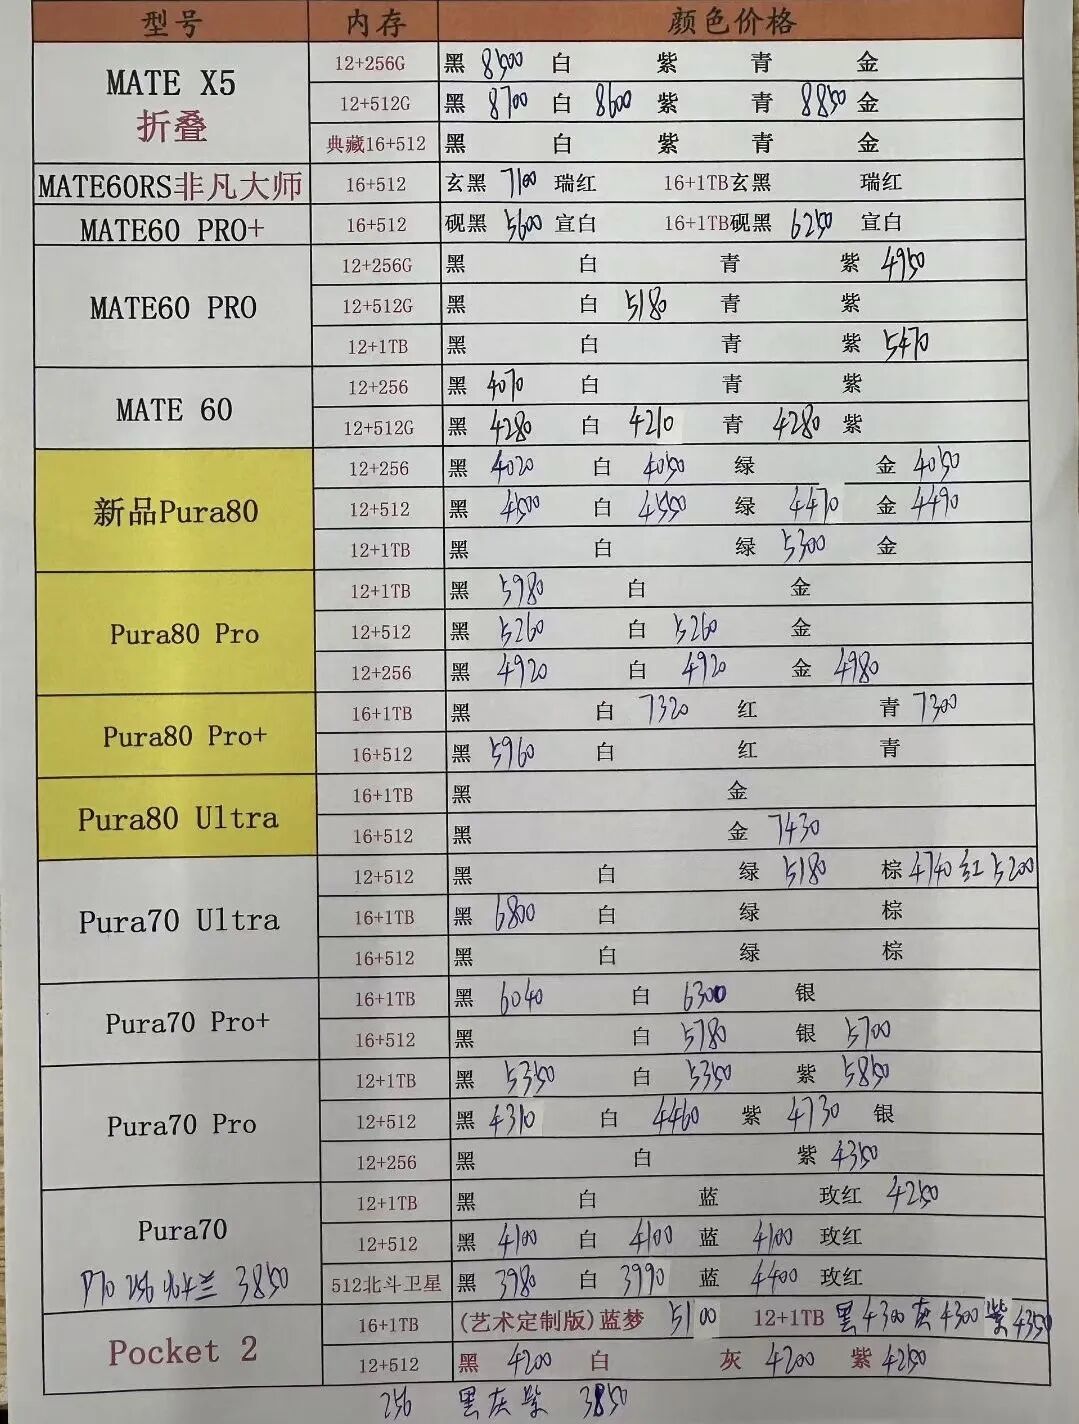 型号 内存 颜色价格
MATE X5 折叠 12+256G 黑 8500 白 紫 青 金
12+512G 黑 8700 白 8600 紫 青 8850 金
典藏16+512 黑 白 紫 青 金
MATE60RS非凡大师 16+512 玄黑 7100 瑞红 16+1TB玄黑 瑞红
MATE60 PRO+ 16+512 砚黑 5600 宣白 16+1TB砚黑 6250 宣白
MATE60 PRO 12+256G 黑 白 青 紫 4950
12+512G 黑 白 5180 青 紫
12+1TB 黑 白 青 紫 5470
MATE 60 12+256 黑 4070 白 青 紫
12+512G 黑 4280 白 4210 青 4280 紫
新品Pura80 12+256 黑 4020 白 4050 绿 金 4050
12+512 黑 4500 白 4550 绿 4470 金 4490
12+1TB 黑 白 绿 5300 金
Pura80 Pro 12+1TB 黑 5980 白 金
12+512 黑 5260 白 5260 金
12+256 黑 4920 白 4920 金 4980
Pura80 Pro+ 16+1TB 黑 白 7320 红 青 7300
16+512 黑 5960 白 红 青
Pura80 Ultra 16+1TB 黑 金
16+512 黑 金 7430
Pura70 Ultra 12+512 黑 白 绿 5180 棕 4740 红 5200
16+1TB 黑 6800 白 绿 棕
16+512 黑 白 绿 棕
Pura70 Pro+ 16+1TB 黑 6040 白 6300 银
16+512 黑 白 5780 银 5700
Pura70 Pro 12+1TB 黑 5350 白 5350 紫 5850
12+512 黑 4310 白 4460 紫 4730 银
12+256 黑 白 紫 4350
Pura70 12+1TB 黑 白 蓝 玫红 4250
12+512 黑 4100 白 4100 蓝 4100 玫红
P70 256 北斗兰 3850 512北斗卫星 黑 3980 白 3990 蓝 4400 玫红
Pocket 2 16+1TB (艺术定制版)蓝梦 5100 12+1TB 黑 4300 灰 4300 紫 4350
12+512 黑 4200 白 灰 4200 紫 4250
256 黑灰紫 3850